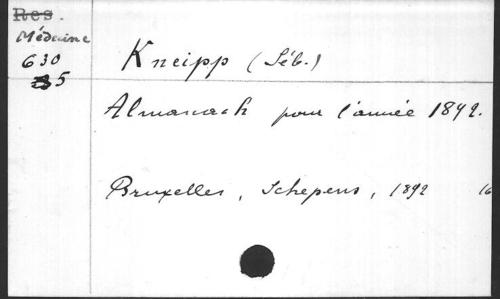 Res.
Médecine
630
85
Kneipp (Séb.)
Almanach pour l'année 1892.
Bruxelles, Schepens, 1892 16